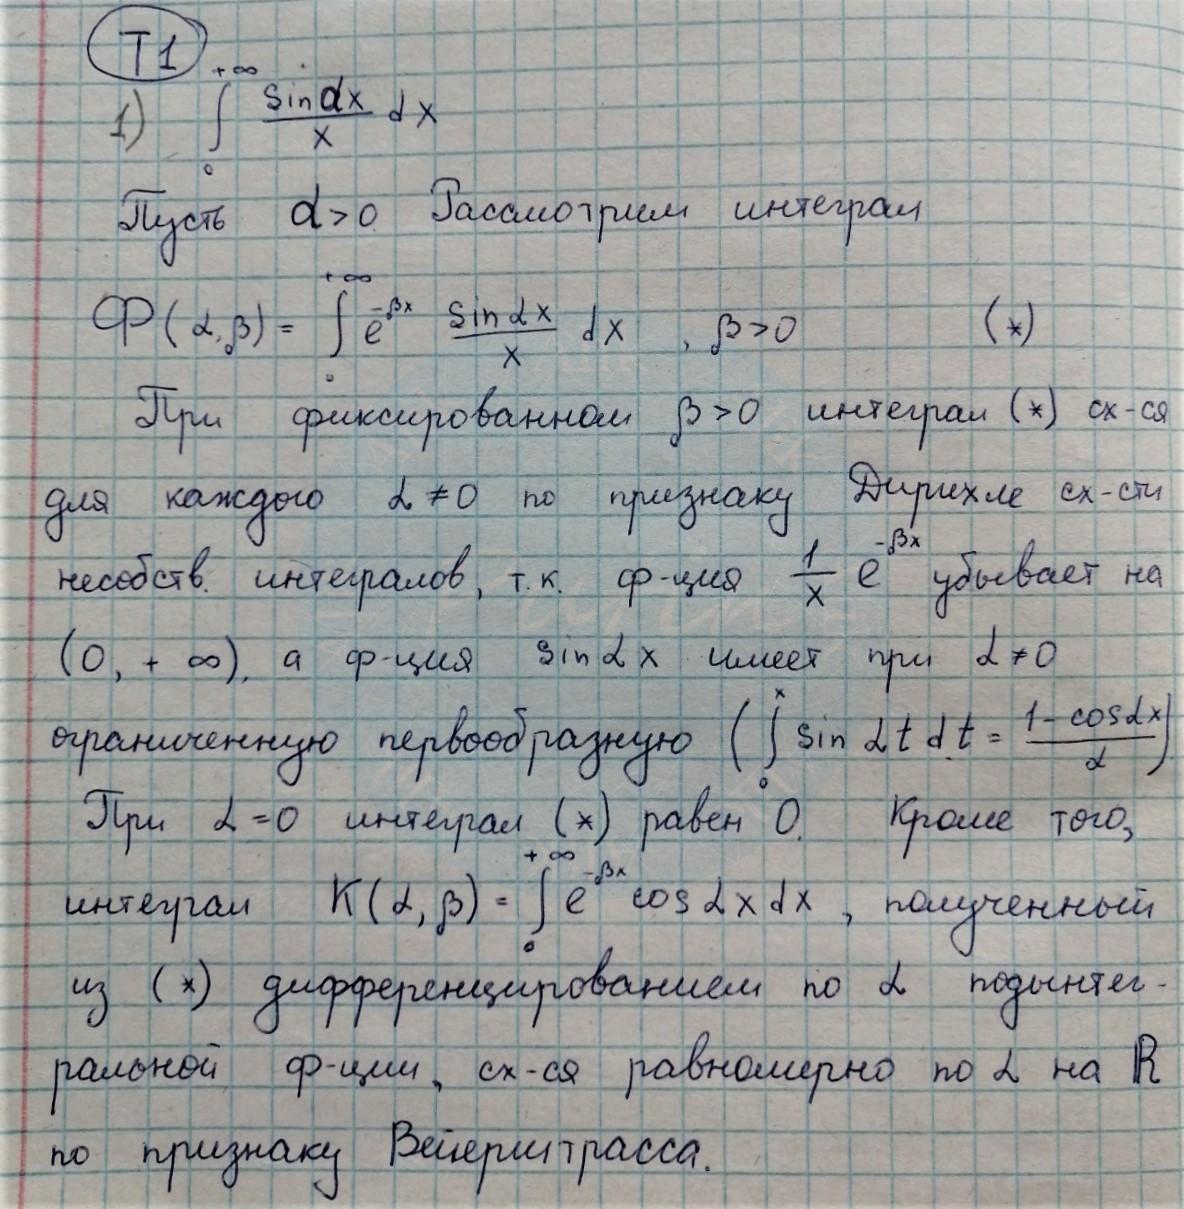 T1
1) ∫₀^{+∞} sin αx / x dx
Пусть α>0. Рассмотрим интеграл
Φ(α,β) = ∫₀^{+∞} e^{-βx} sin αx / x dx , β>0 (*)
При фиксированном β>0 интеграл (*) сх-ся
для каждого α≠0 по признаку Дирихле сх-сти
несобств. интегралов, т.к. ф-ция 1/x e^{-βx} убывает на
(0, +∞), а ф-ция sin αx имеет при α≠0
ограниченную первообразную (∫₀^x sin αt dt = 1-cos αx / α)
При α=0 интеграл (*) равен 0. Кроме того,
интеграл K(α,β) = ∫₀^{+∞} e^{-βx} cos αx dx , полученный
из (*) дифференцированием по α подынтег-
ральной ф-ции, сх-ся равномерно по α на ℝ
по признаку Вейерштрасса.